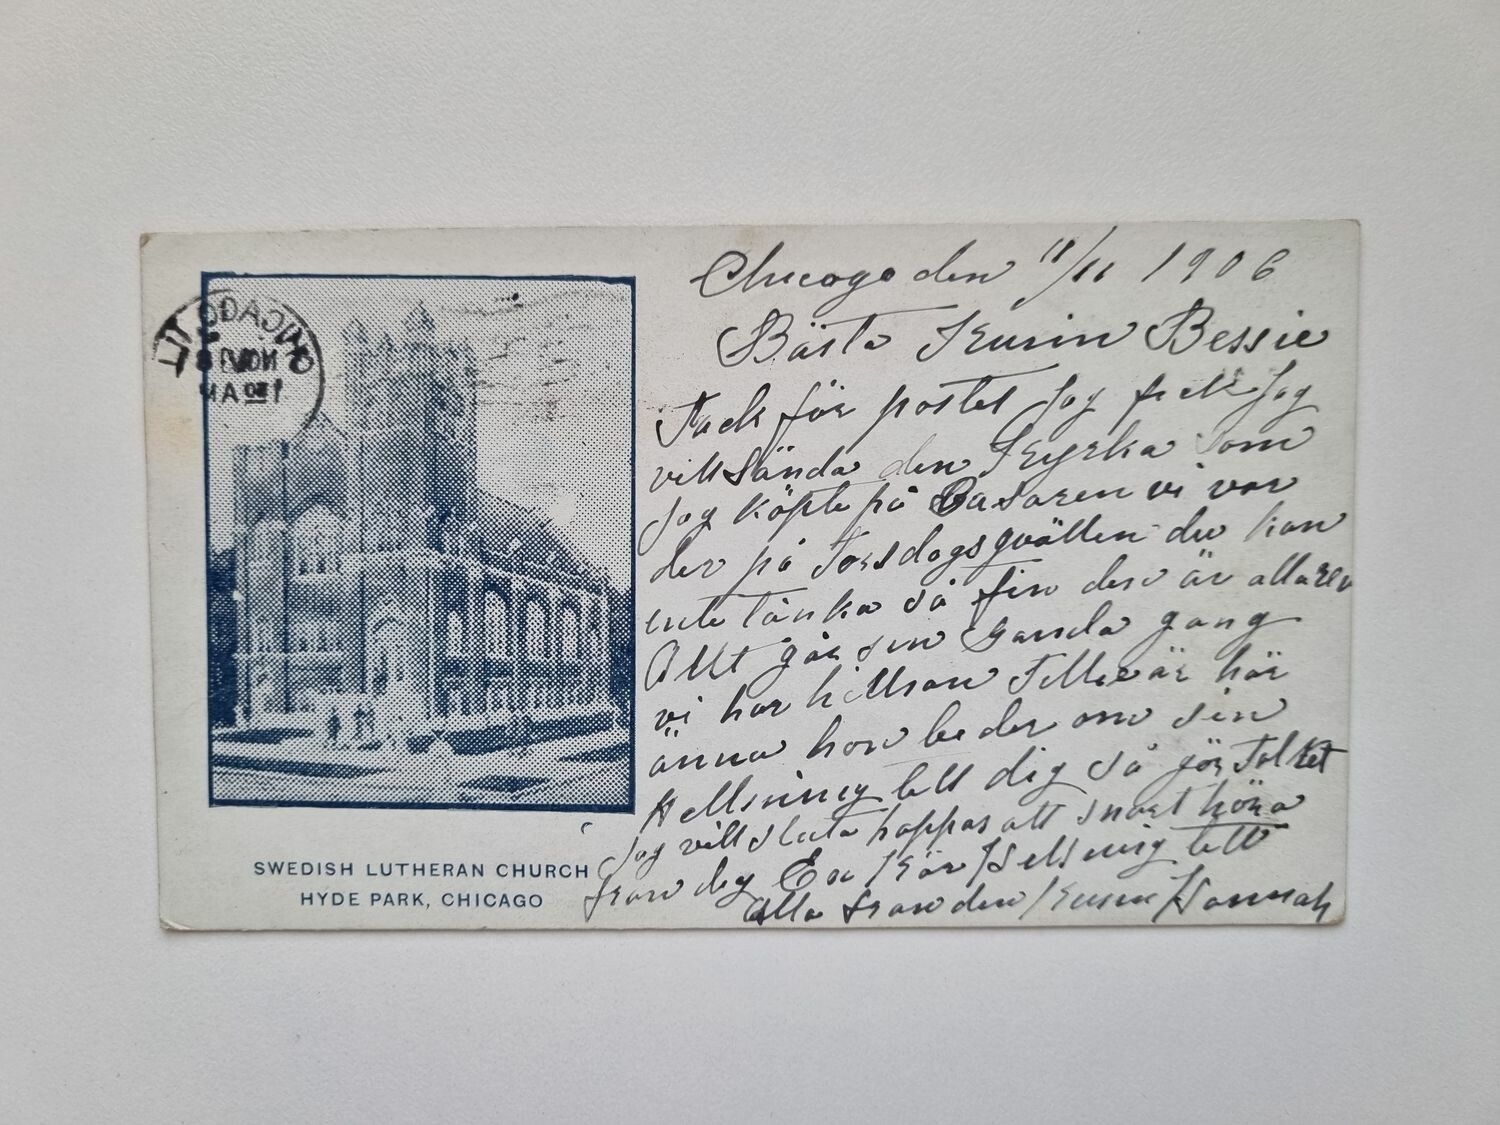 Chicago den 11/11 1906
Bästa Kusin Bessie
Tack för postet jag fick Jag
vill sända den Kyrka som
jag köpte på Basaren vi var
der på Torsdagsqvällen du kan
inte tänka så fin den är allaren
Allt går sin ganda gang
vi har hillson Tillie är här
änna hon beder om sin
Hellsning till dig så gör Folket
jag vill sluta hoppas att snart höra
fron dig En Kär Helsning till
Alla fron den Kusin Hannah
CHICAGO, ILL
NOV
1 00 AM
SWEDISH LUTHERAN CHURCH
HYDE PARK, CHICAGO